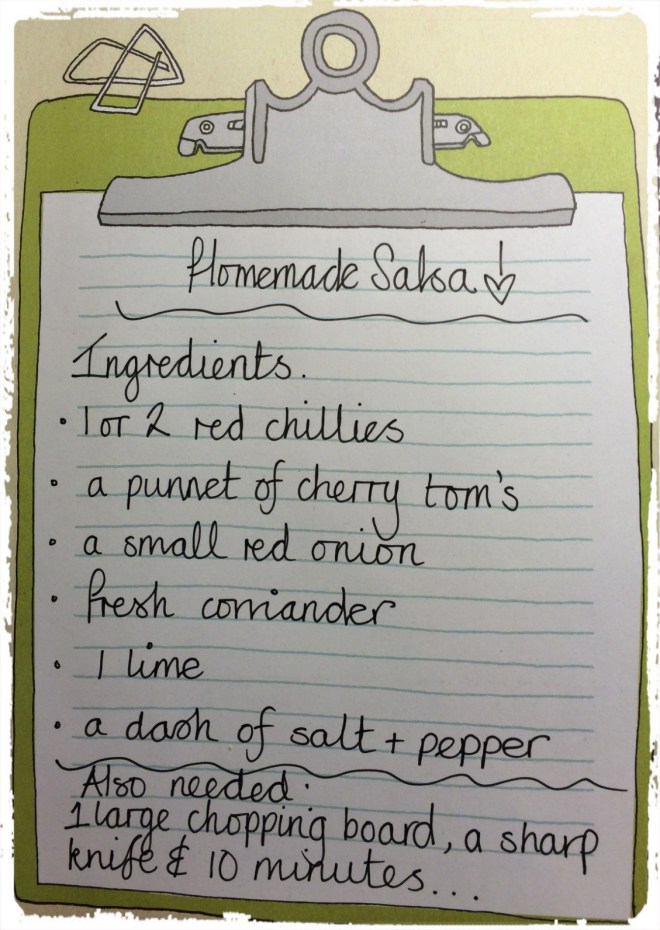 Homemade Salsa
Ingredients.
· 1 or 2 red chillies
· a punnet of cherry tom's
· a small red onion
· fresh corriander
· 1 lime
· a dash of salt + pepper
Also needed.
1 large chopping board, a sharp
knife & 10 minutes...